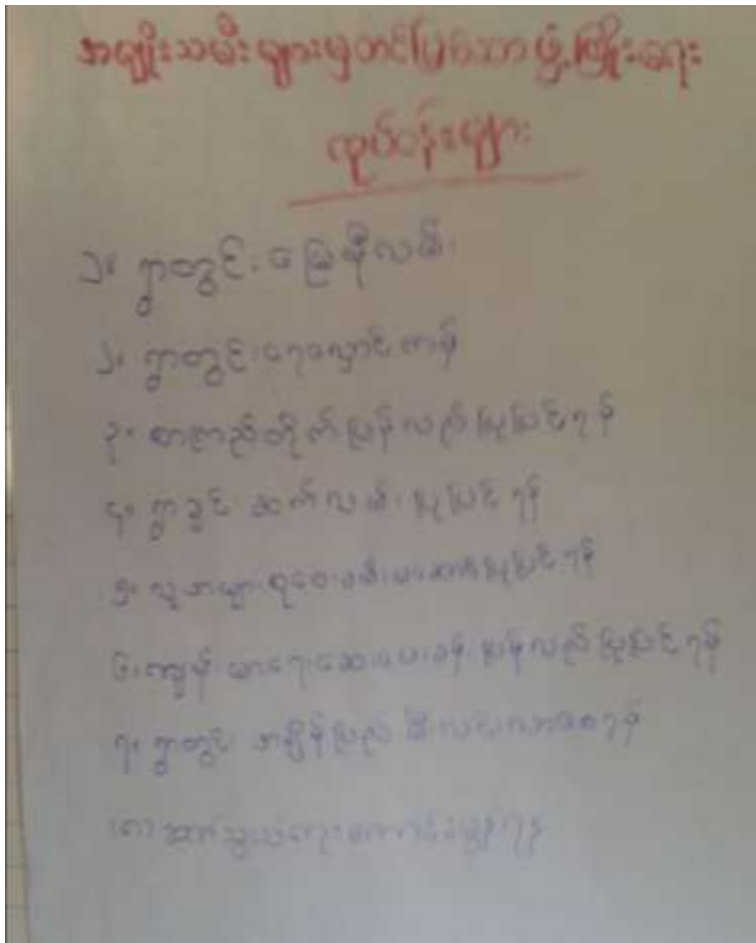 အမျိုးသမီးများမှတင်ပြသော ဖွံ့ဖြိုးရေး
လုပ်ငန်းများ
၁။ ရွာတွင်း မြေနီလမ်း
၂။ ရွာတွင်း ရေလှောင်ကန်
၃။ စာကြည့်တိုက် ပြန်လည်ပြုပြင်ရန်
၄။ ရွာချင်း ဆက်လမ်း ပြုပြင်ရန်
၅။ လူထုများစုဝေး ပြုပြင်ရန်
၆။ ကျန်းမာရေးဆေးပေးခန်း ပြန်လည်ပြုပြင်ရန်
၇။ ရွာတွင်း အချိန်ပြည့် မီးလင်းလာစေရန်
(၈) ဆက်သွယ်ရေးကောင်းမွန်ရန်